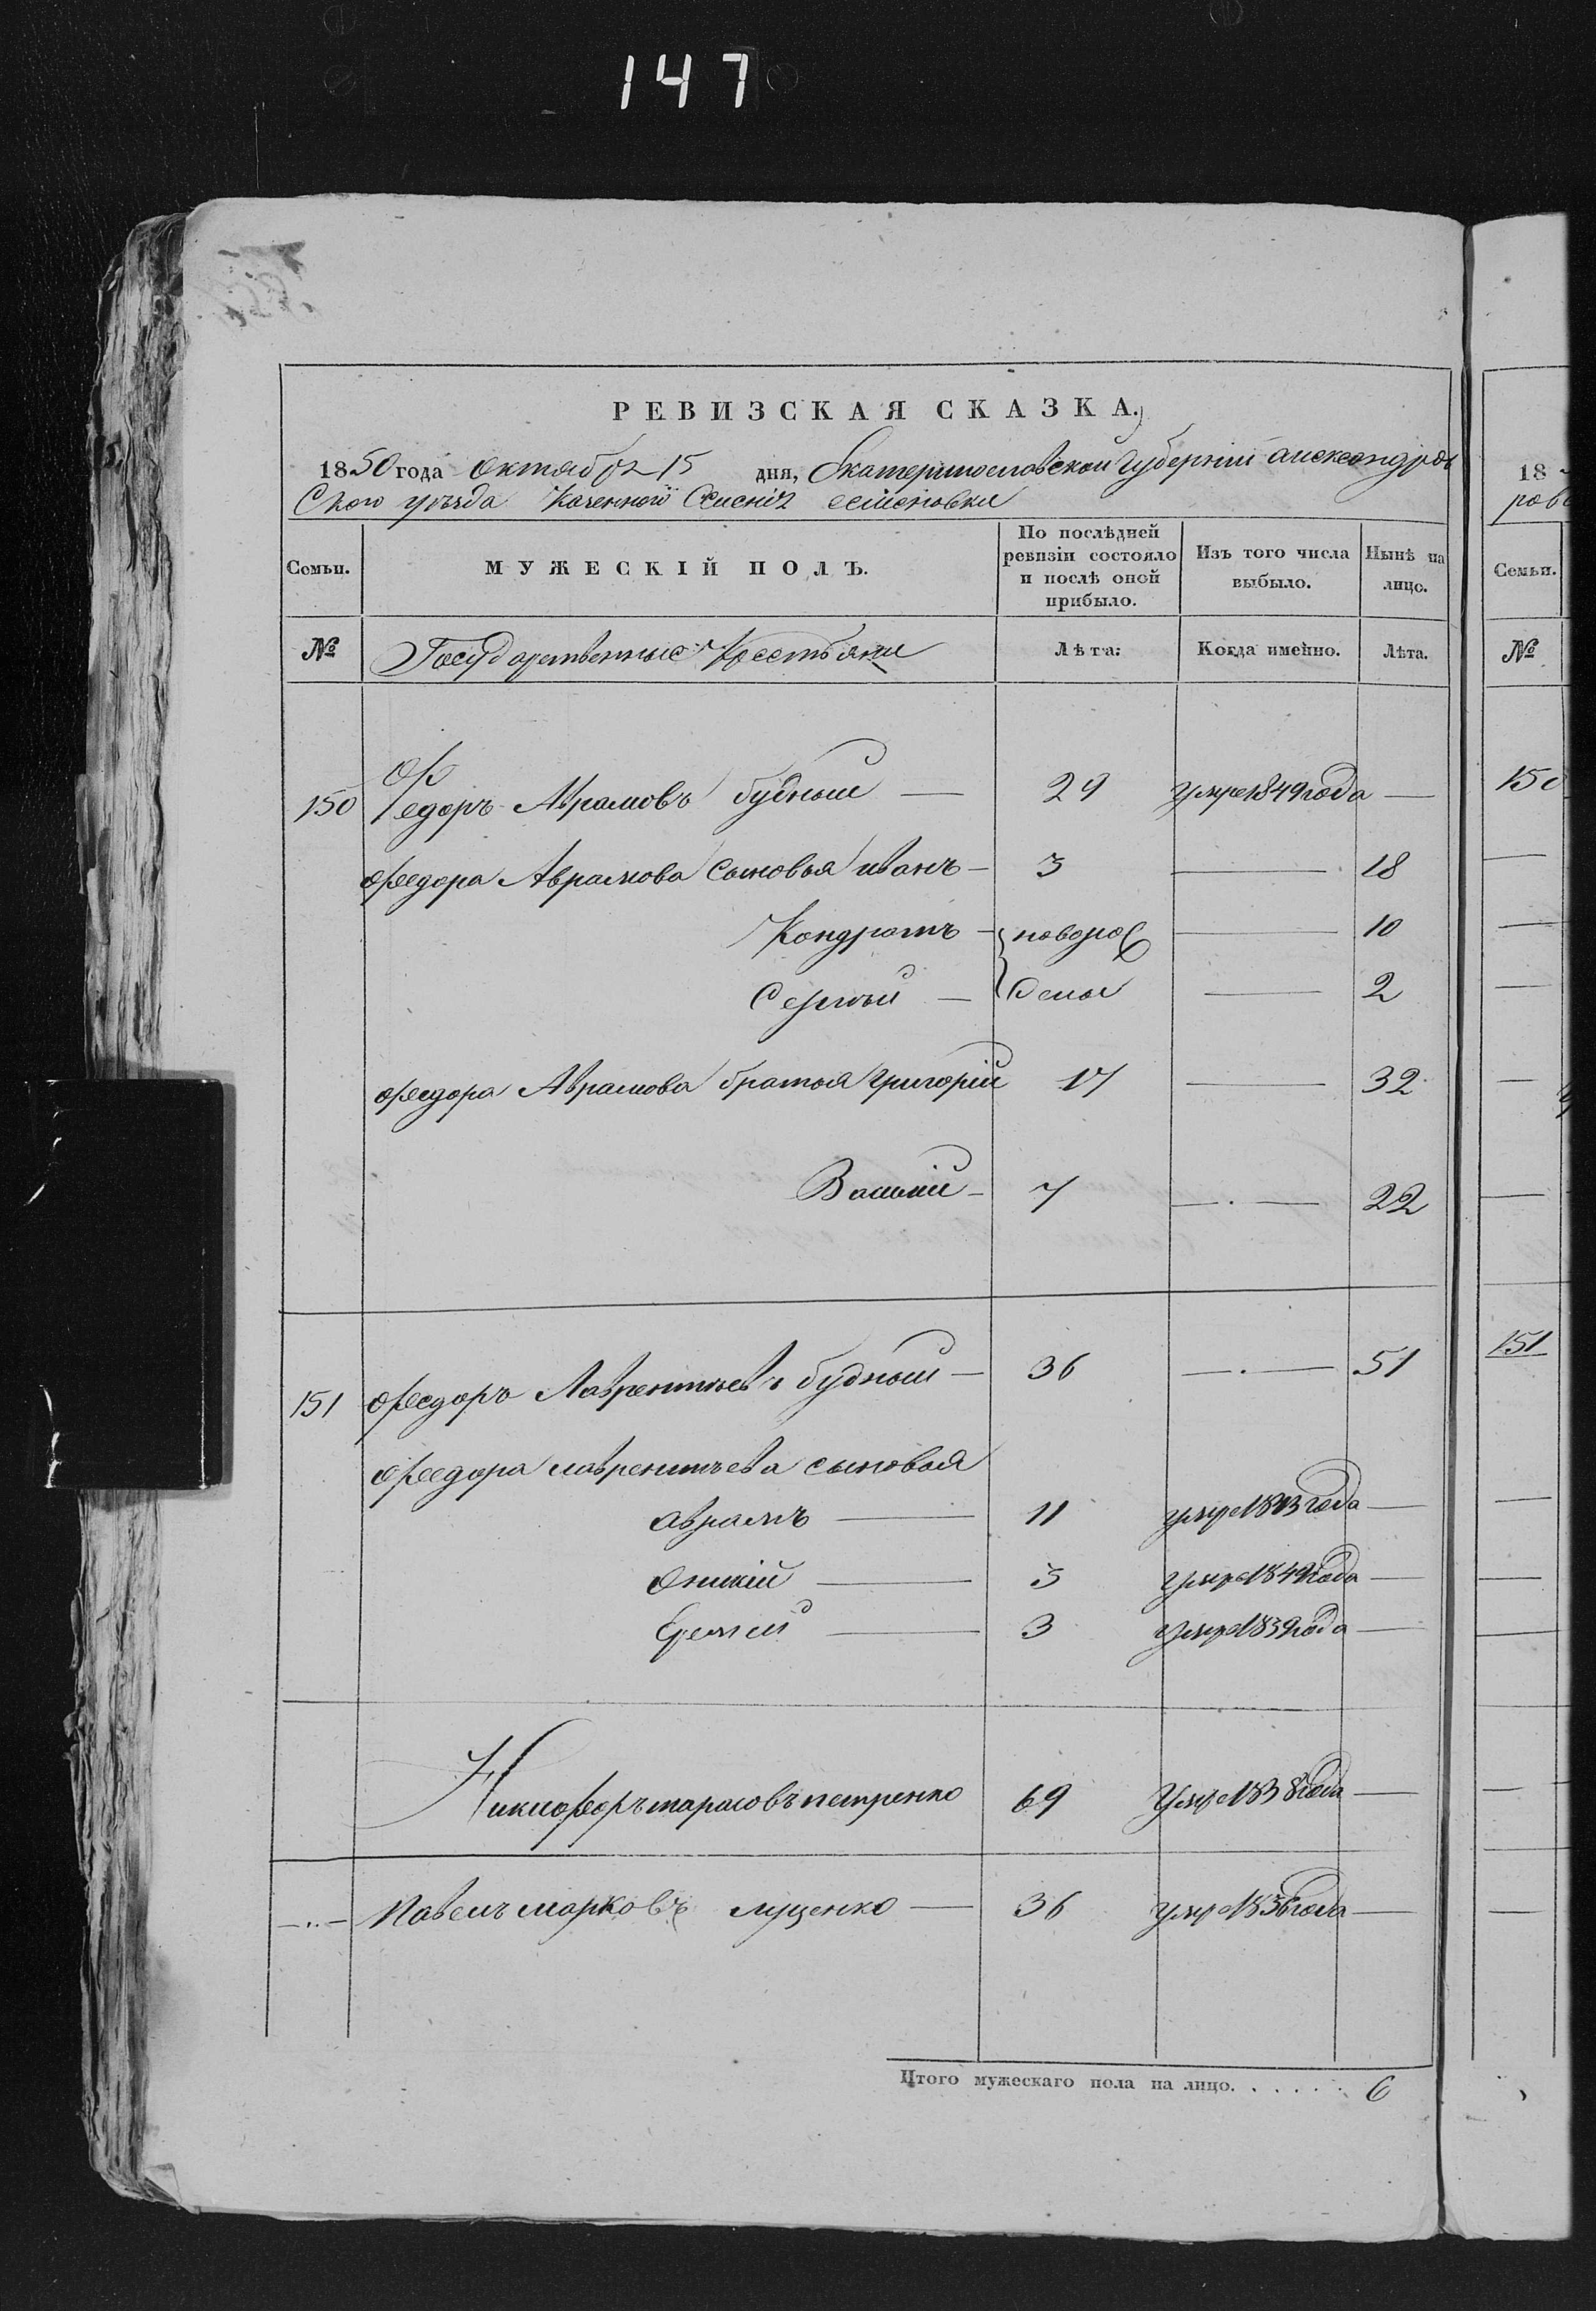 147
РЕВИЗСКАЯ СКАЗКА.
1850 года октября 15 дня, Екатеринославской губерніи александров
Ского уѣзда Казенного Селенія семеновки
Семьи. МУЖЕСКІЙ ПОЛЪ. По послѣдней ревизіи состояло и послѣ оной прибыло. Изъ того числа выбыло. Нынѣ на лицо.
№ Государственные Крестьяни Лѣта: Когда именно. Лѣта.
150 Федоръ Аврамовъ будный — 29 умре 1849 года —
федора Аврамова Сыновья иванъ — 3 — 18
Кондратъ — новорож — 10
Сергѣй — денны — 2
федора Аврамова братья григорій 17 — 32
Василій — 7 — 22
151 федоръ Лаврентьевъ будный — 36 — 51
федора лаврентьева сыновья
аврамъ — 11 умре 1843 года —
Оникій — 5 умре 1849 года —
Еремей — 3 умре 1839 года —
Никифоръ тарасовъ петренко 69 Умре 1838 года —
—..— Павелъ марковъ луценко — 36 умре 1836 года —
Итого мужескаго пола на лицо. . . . . . 6
18
ровс
Семьи.
№
150
151